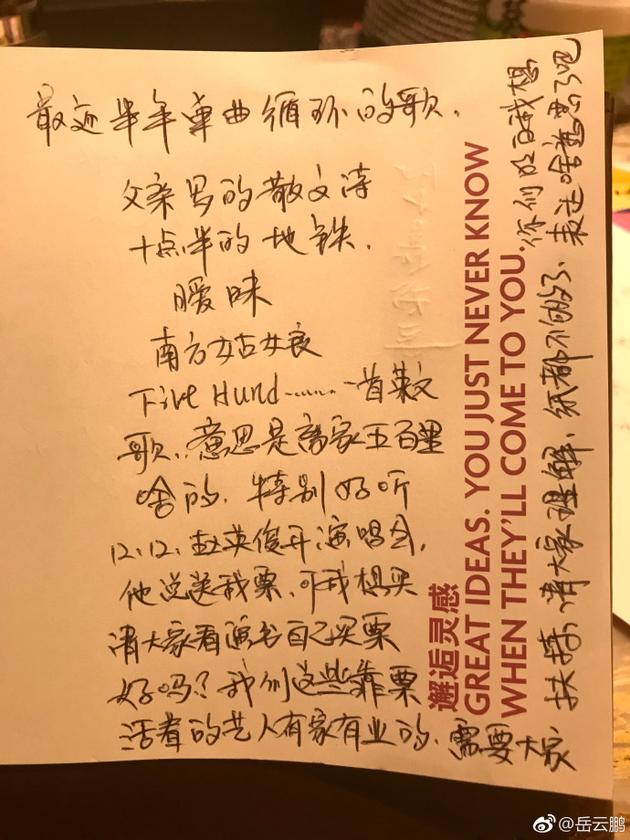 最近半年单曲循环的歌.
父亲写的散文诗
十点半的地铁.
暧昧
南方姑娘
Five Hund......一首英文
歌..意思是离家五百里
啥的.特别好听
12.12.赵英俊开演唱会,
他说送我票.可我想买
请大家看演出自己买票
好吗?我们这些靠票
活着的艺人有家有业的.需要大家
扶持.请大家理解.纸都不够了.
你们明白我想
表达啥意思了吧
邂逅灵感
GREAT IDEAS. YOU JUST NEVER KNOW
WHEN THEY'LL COME TO YOU.
@岳云鹏